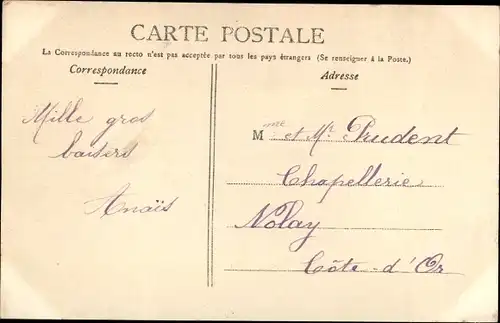 CARTE POSTALE
La Correspondance au recto n'est pas acceptée par tous les pays étrangers (Se renseigner à la Poste.)
Correspondance
Adresse
Mille gros
baisers
Anaïs
Mme et Mr Prudent
Chapellerie
Nolay
Côte-d'Or